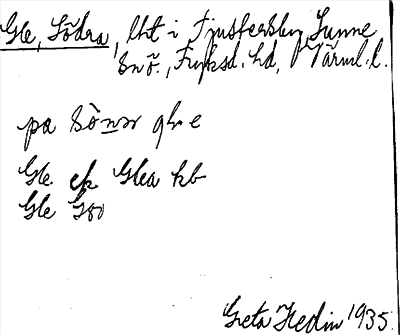 Gle, Södra, lht i Tjustersbyn, Sunne
snö., Fryksd. hd, Värml. l.
pa Sònər glı e
Gle ek Glea kb
Gle Gso
Greta Hedin 1935.